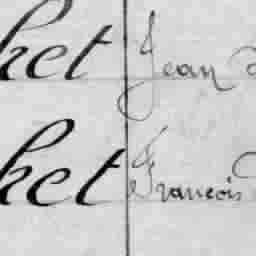 ket Jean
ket Francois